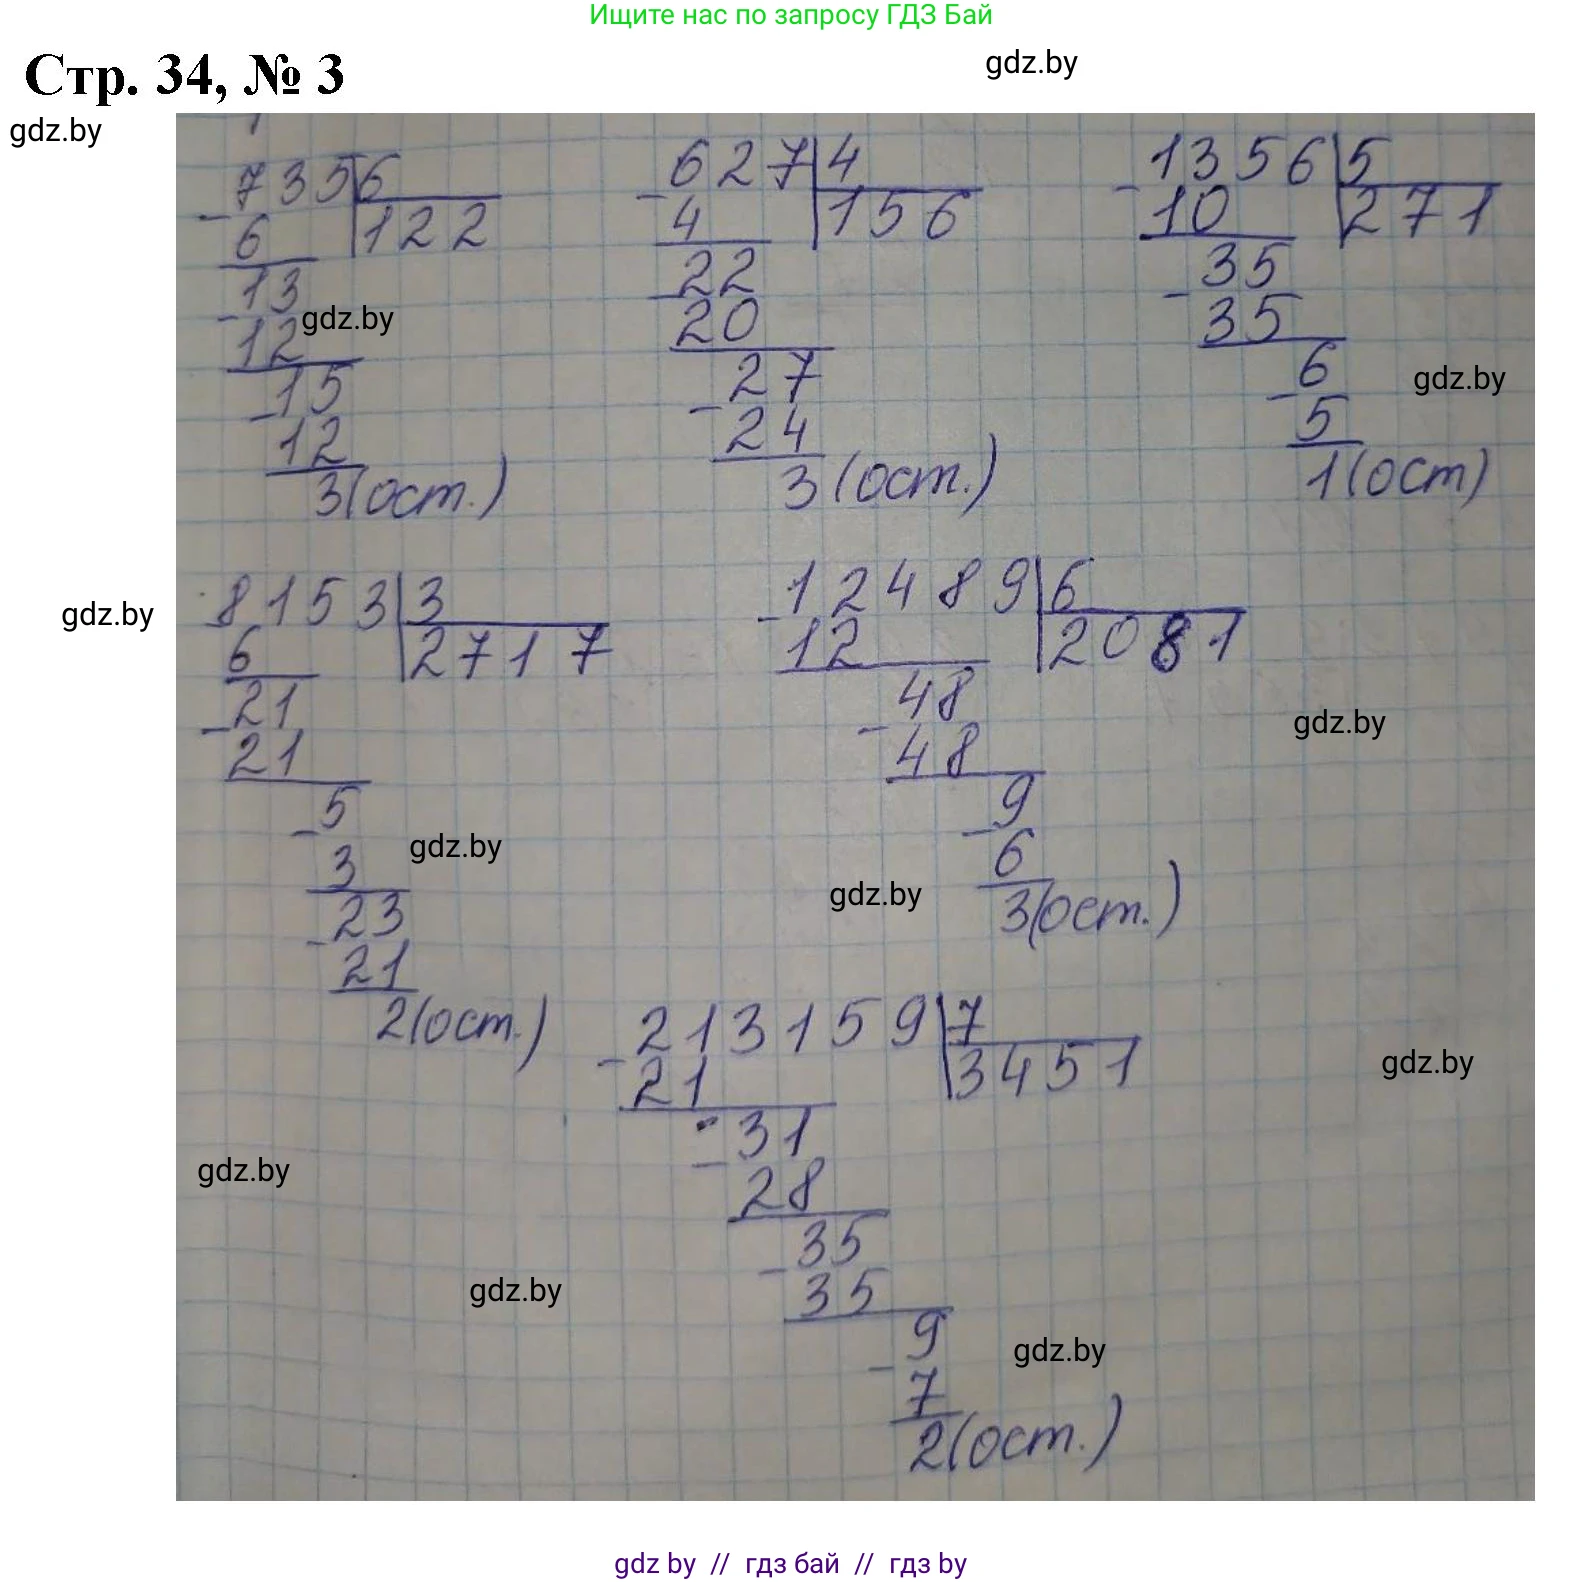 Ищите нас по запросу ГДЗ Бай
Стр. 34, № 3
gdz.by
gdz.by
735 6
- 6 122
13
- 12
gdz.by
15
- 12
3(ост.)
627 4
- 4 156
22
- 20
27
- 24
3 (ост.)
1356 5
- 10 271
35
- 35
6
- 5
1(ост)
gdz.by
gdz.by
8153 3
6 2717
21
- 21
5
- 3
23
- 21
2(ост.)
gdz.by
12489 6
- 12 2081
48
- 48
9
- 6
3(ост.)
gdz.by
gdz.by
213159 7
- 21 3451
31
- 28
35
- 35
9
- 7
2(ост.)
gdz.by
gdz.by
gdz.by
gdz.by
gdz by // гдз бай // гдз by